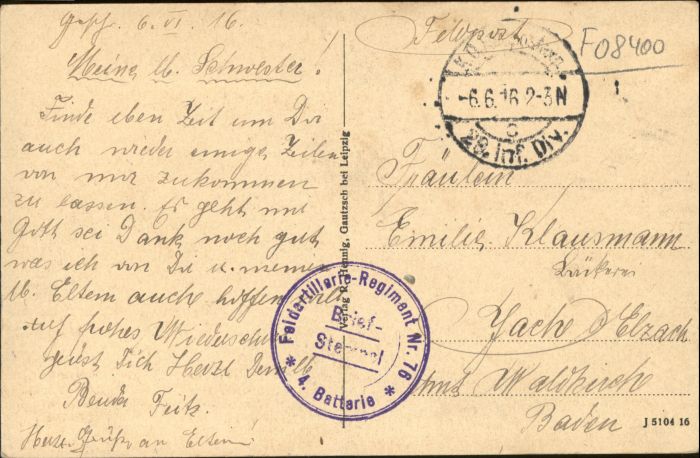 Gesch. 6. VI. 16.
Meine lb. Schwester!
Finde eben Zeit um Dir
auch wieder einige Zeilen
von mir zukommen
zu lassen. Es geht mir
Gott sei Dank noch gut
was ich von Dir u. meinen
lb. Eltern auch hoffen will
auf frohes Wiedersehn
grüst Dich Herzl. Dein lb
Bruder Fritz.
Herz. Grüße an Eltern!
Verlag R. Hennig, Gautzsch bei Leipzig
Feldpost
F08400
-6.6.16 2-3N
c
28. Inf. Div.
Fräulein
Emilie Klausmann
Bäckerei
Jach b/Elzach
Amt Waldkirch
Baden
Feldartillerie-Regiment Nr. 76
Brief-
Stempel
* 4. Batterie *
J 5104 16